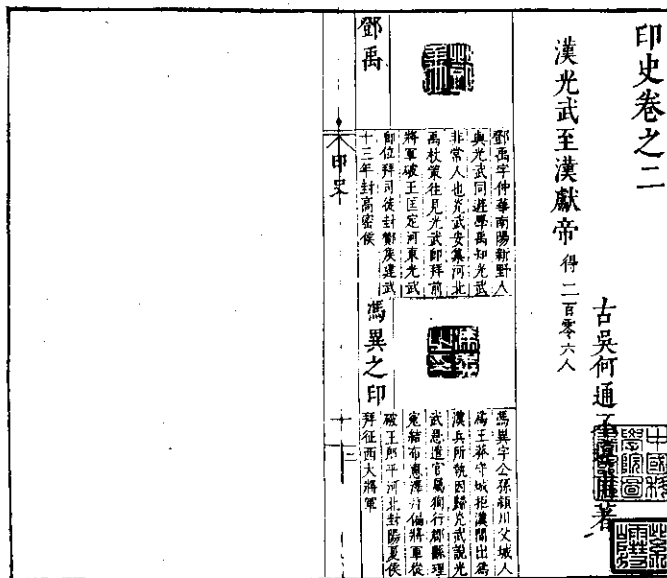 印史卷之二
漢光武至漢獻帝 得二百零六人
古吳何通不違甫著
鄧禹
鄧禹字仲華南陽新野人
與光武同遊學禹知光武
非常人也光武安集河北
禹杖策往見光武即拜前
將軍破王匡定河東光武
即位拜司徒封酇侯建武
十三年封高密侯
馮異之印
馮異字公孫潁川父城人
爲王莽守城拒漢間出爲
漢兵所執因歸光武說光
武思遣官屬徇行郡縣理
冤結布惠澤行偏將軍從
破王郎平河北封陽夏侯
拜征西大將軍
印史